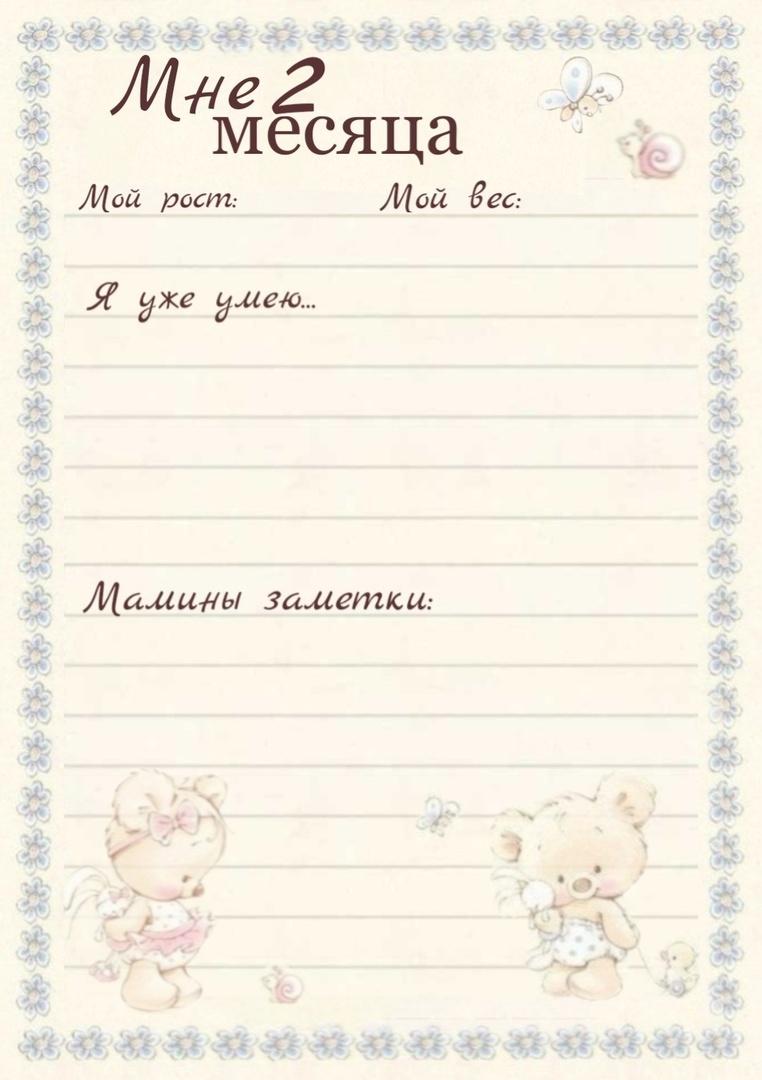 Мне 2
месяца
Мой рост: Мой вес:
Я уже умею...
Мамины заметки: